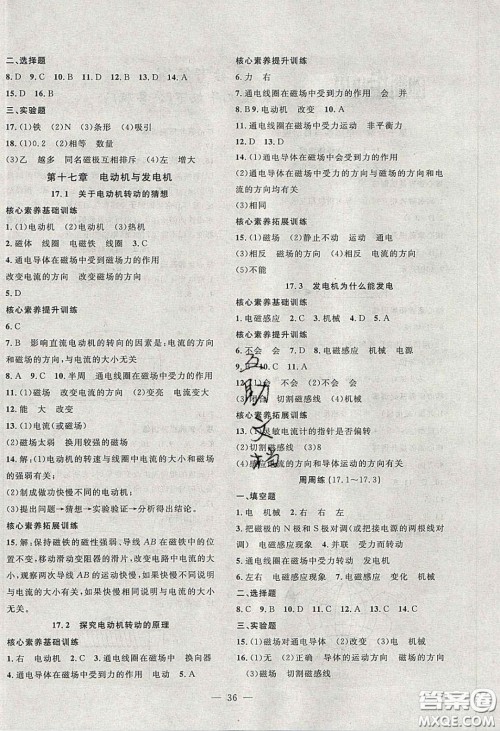 二、选择题
8. D  9. C  10. B  11. C  12. C  13. D  14. A
15. D  16. B
三、实验题
17. (1)铁  (2)N  (3)条形  (4)吸引
18. (2)
(3)乙  越多  同名磁极互相排斥  (4)左  增大
第十七章  电动机与发电机
17.1  关于电动机转动的猜想
核心素养基础训练
1. (1)电动机  (2)电动机  (3)热机
2. 磁体  线圈  电磁铁  线圈  3. C
4. 通电线圈在磁场中受到力的作用
改变电流的方向  改变磁场的方向
5. D
核心素养提升训练
6. C
7. B  影响直流电动机的转向的因素是:电流的方向和磁场的方向,与电流的大小无关
8. A  9. D  10. 半周  通电线圈在磁场中受力的作用
11. (1)磁场  改变电流的方向  (2)变亮  电流变大
12. 能  大  改变
13. (1)电流(或磁场)
(2)磁场太弱  换用较强的磁体
14. (1)电动机的转速与线圈中电流的大小和磁场的强弱有关;
(2)制成做功快慢不同的电动机;
(3)提出问题→猜想→实验验证→分析得出结论。
核心素养拓展训练
15. 解:保持磁铁的磁性强弱、导线AB在磁体中的位置不变,移动滑动变阻器的滑片,改变电路中电流的大小,观察两次导线AB的运动快慢,如果导线运动的快慢不同,则说明导线AB运动快慢与电流的大小有关,若导线运动的快慢相同,则与电流的大小无关。
17.2  探究电动机转动的原理
核心素养基础训练
1. 右  电动机  2. 通电线圈在磁场中  换向器
3. C  4. D  5. A
核心素养提升训练
6. 力  右
7. 通电线圈在磁场中受力的作用  会  并
8. D  9. C
10. 通电线圈在磁场中受力运动  非平衡力
11. 改变
12. (1)通电导体在磁场中受到力的作用
(2)通电导体在磁场中受力的方向与磁场和电流的方向均有关
(3)相同
核心素养拓展训练
13. (1)磁场  (2)静止不动  运动  通电
(3)相反  相反  磁场的方向  电流的方向
(5)不能
17.3  发电机为什么能发电
核心素养基础训练
1. 电磁感应  2. 机械  3. C  4. B  5. D
核心素养提升训练
6. 不会  会  7. 电磁感应  机械  电源
8. C  9. B  10. A  11. D
12. (1)会  不会  会  (2)不会
(3)闭合  切割磁感线
核心素养拓展训练
13. (1)灵敏电流计的指针是否偏转
(2)切割磁感线  (3)8
(4)感应电流的方向和导体运动的方向有关
周周练(17.1~17.3)
一、填空题
1. 电  机械  2. 右  改变
3. 把磁极的N极和S极对调(或把接电源的两根线对调)  电磁感应现象  4. 并联  受力  改变
5. 通电导体在磁场中受力转动  发电机
6. 左右  电磁感应现象  7. 变小  机械
二、选择题
8. C  9. B  10. D  11. A  12. B  13. B  14. C
三、实验题
15. (1)磁场对通电导体  (2)左  右  (3)右
16. (1)无  (2)正  (3)导体的运动方向  磁场的方向  (4)闭合  切割磁感线
— 36 —
互助文档
答案圈
MXQE.COM